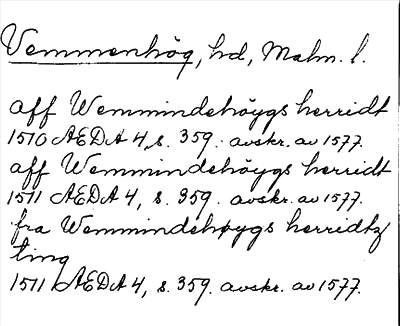 Vemmenhög, hd, Malm. l.
aff Wemmindehöygs herridt
1510 ÆDA 4, s. 359. avskr. av 1577.
aff Wemmindehöygs herridt
1511 ÆDA 4, s. 359. avskr. av 1577.
fra Wemmindehøygs herridtz
ting
1511 ÆDA 4, s. 359. avskr. av 1577.